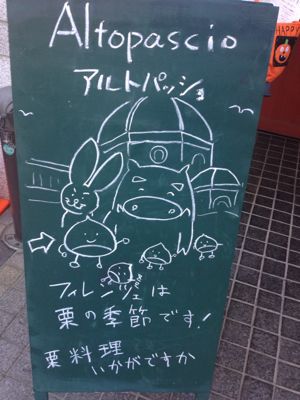 Altopascio
アルトパッショ
フィレンツェは
栗の季節です!
栗料理
いかがですか